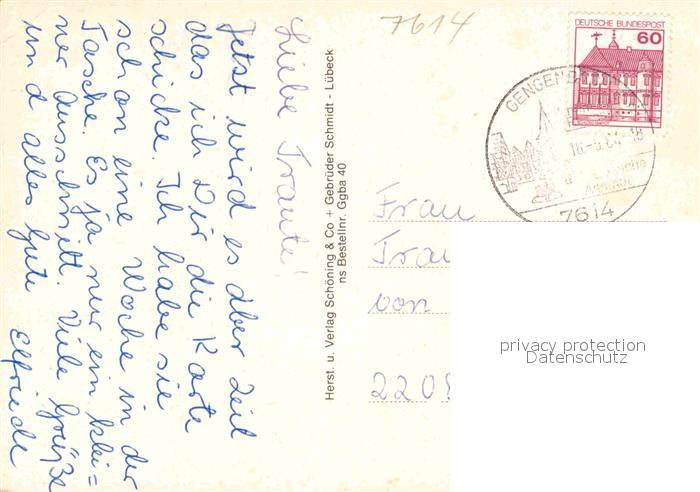 Liebe Traute!
Jetzt wird es aber Zeit
das ich Dir die Karte
schicke. Ich habe sie
schon eine Woche in der
Tasche. Es ja nur ein klei=
ner Ausschnitt. Viele Grüße
und alles Gute Elfriede
Herst. u. Verlag Schöning & Co + Gebrüder Schmidt - Lübeck
ns Bestellnr. Ggba 40
7614
DEUTSCHE BUNDESPOST
60
GENGENB
18
7614
Frau
Trau
von
220
privacy protection
Datenschutz